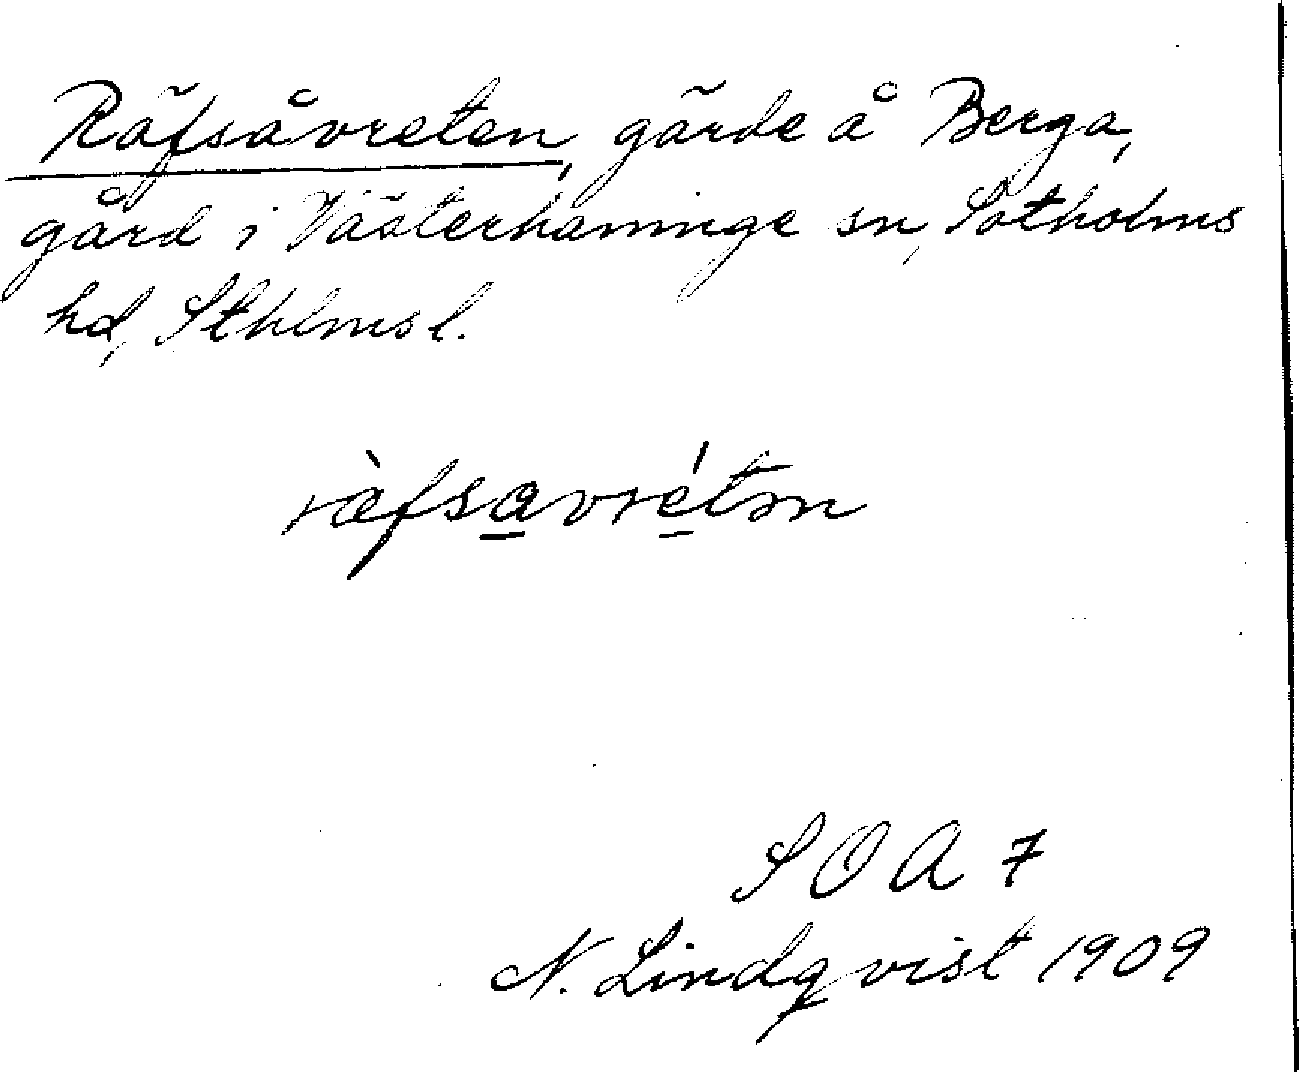 Räfsåvreten, gärde å Berga,
gård i Västerhaninge sn, Sotholms
hd, Sthlms l.
ràfsavrétn
S O A 7
N. Lindqvist 1909